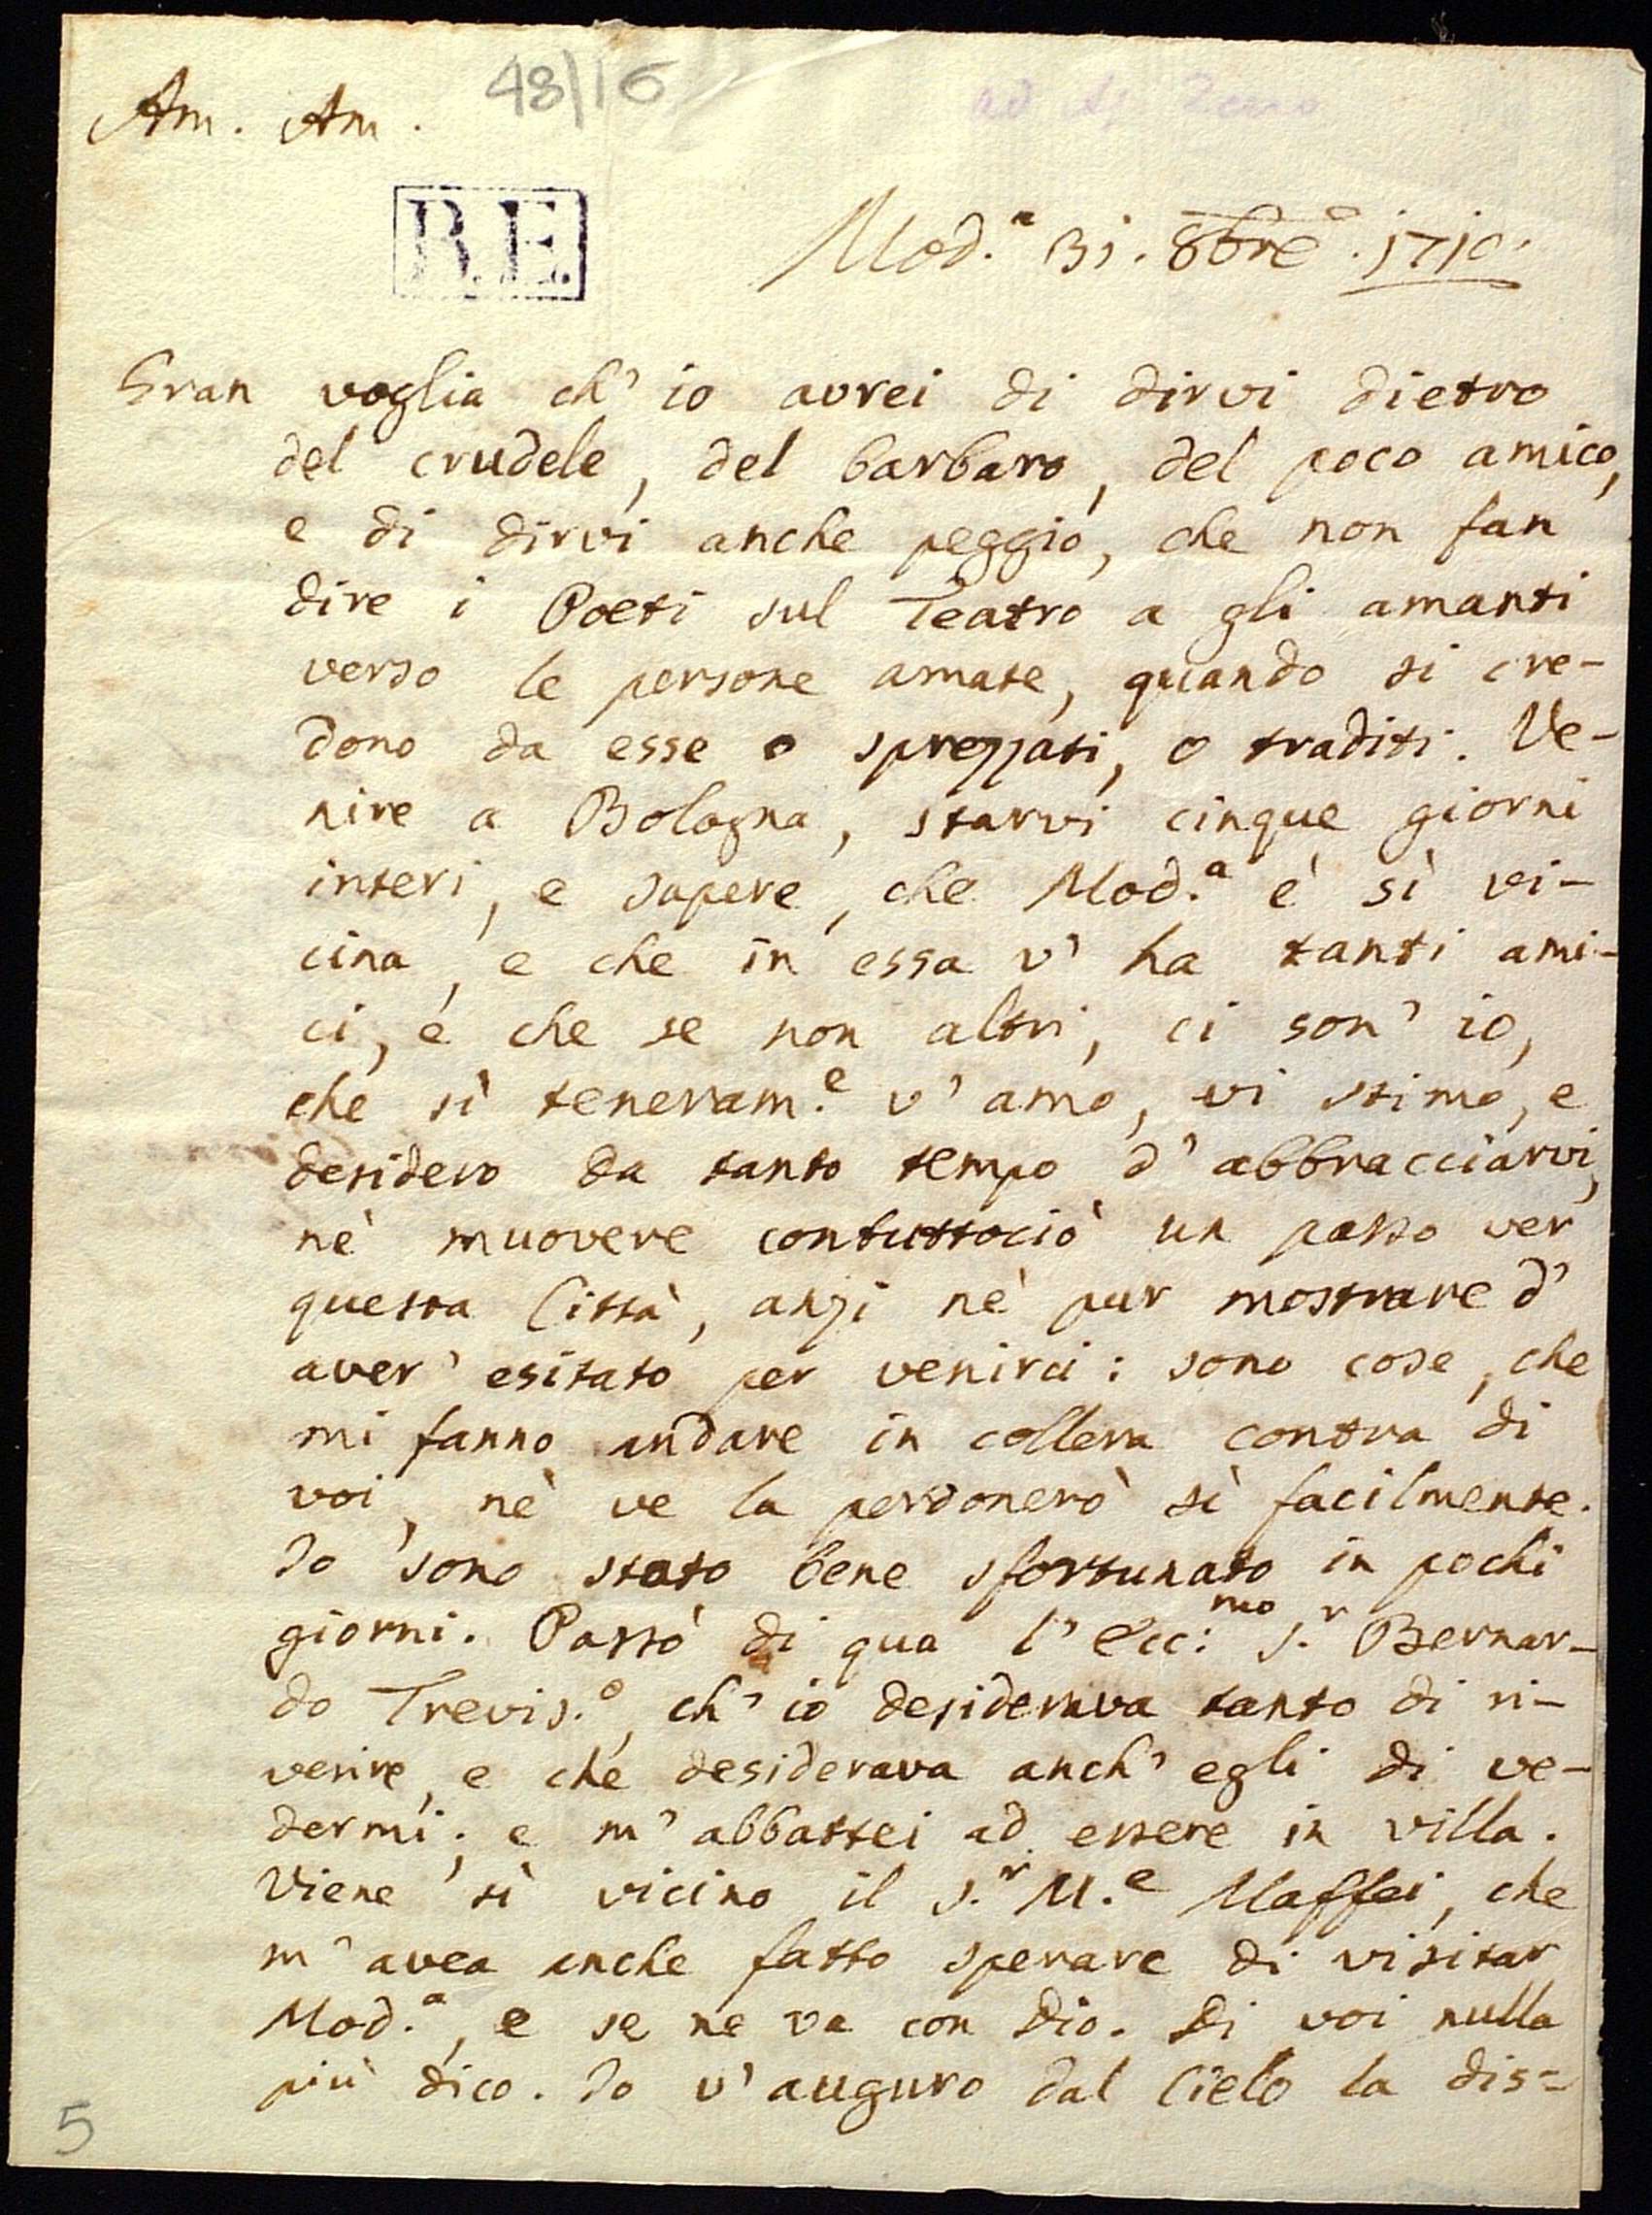 Am. Am.
48/16
ad Ap. Zeno
B.E.
Mod.ª 31. 8bre. 1710.
Gran voglia ch' io avrei di dirvi dietro
del crudele, del barbaro, del poco amico,
e di dirvi anche peggio, che non fan
dire i Poeti sul Teatro a gli amanti
verso le persone amate, quando si cre-
dono da esse o sprezzati, o traditi. Ve-
nire a Bologna, starvi cinque giorni
interi, e sapere, che Mod.ª è sì vi-
cina, e che in essa v' ha tanti ami-
ci, e che se non altri, ci son' io,
che sì teneram.e v' amo, vi stimo, e
desidero da tanto tempo d' abbracciarvi,
nè muovere contuttociò un passo ver
questa Città, anzi nè pur mostrare d'
aver' esitato per venirci: sono cose, che
mi fanno andare in collera contra di
voi, nè ve la perdonerò sì facilmente.
Io sono stato bene sfortunato in pochi
giorni. Passò di qua l' Ecc:mo S.r Bernar-
do Trevis.o, ch' io desiderava tanto di ri-
verire, e che desiderava anch' egli di ve-
dermi; e m' abbattei ad essere in villa.
Viene sì vicino il S.r M.e Maffei, che
m' avea anche fatto sperare di visitar
Mod.ª, e se ne va con Dio. Di voi nulla
più dico. Io v' auguro dal Cielo la dis-
5